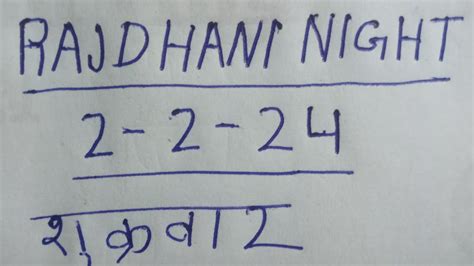 RAJDHANI NIGHT
2-2-24
शुक्रवार